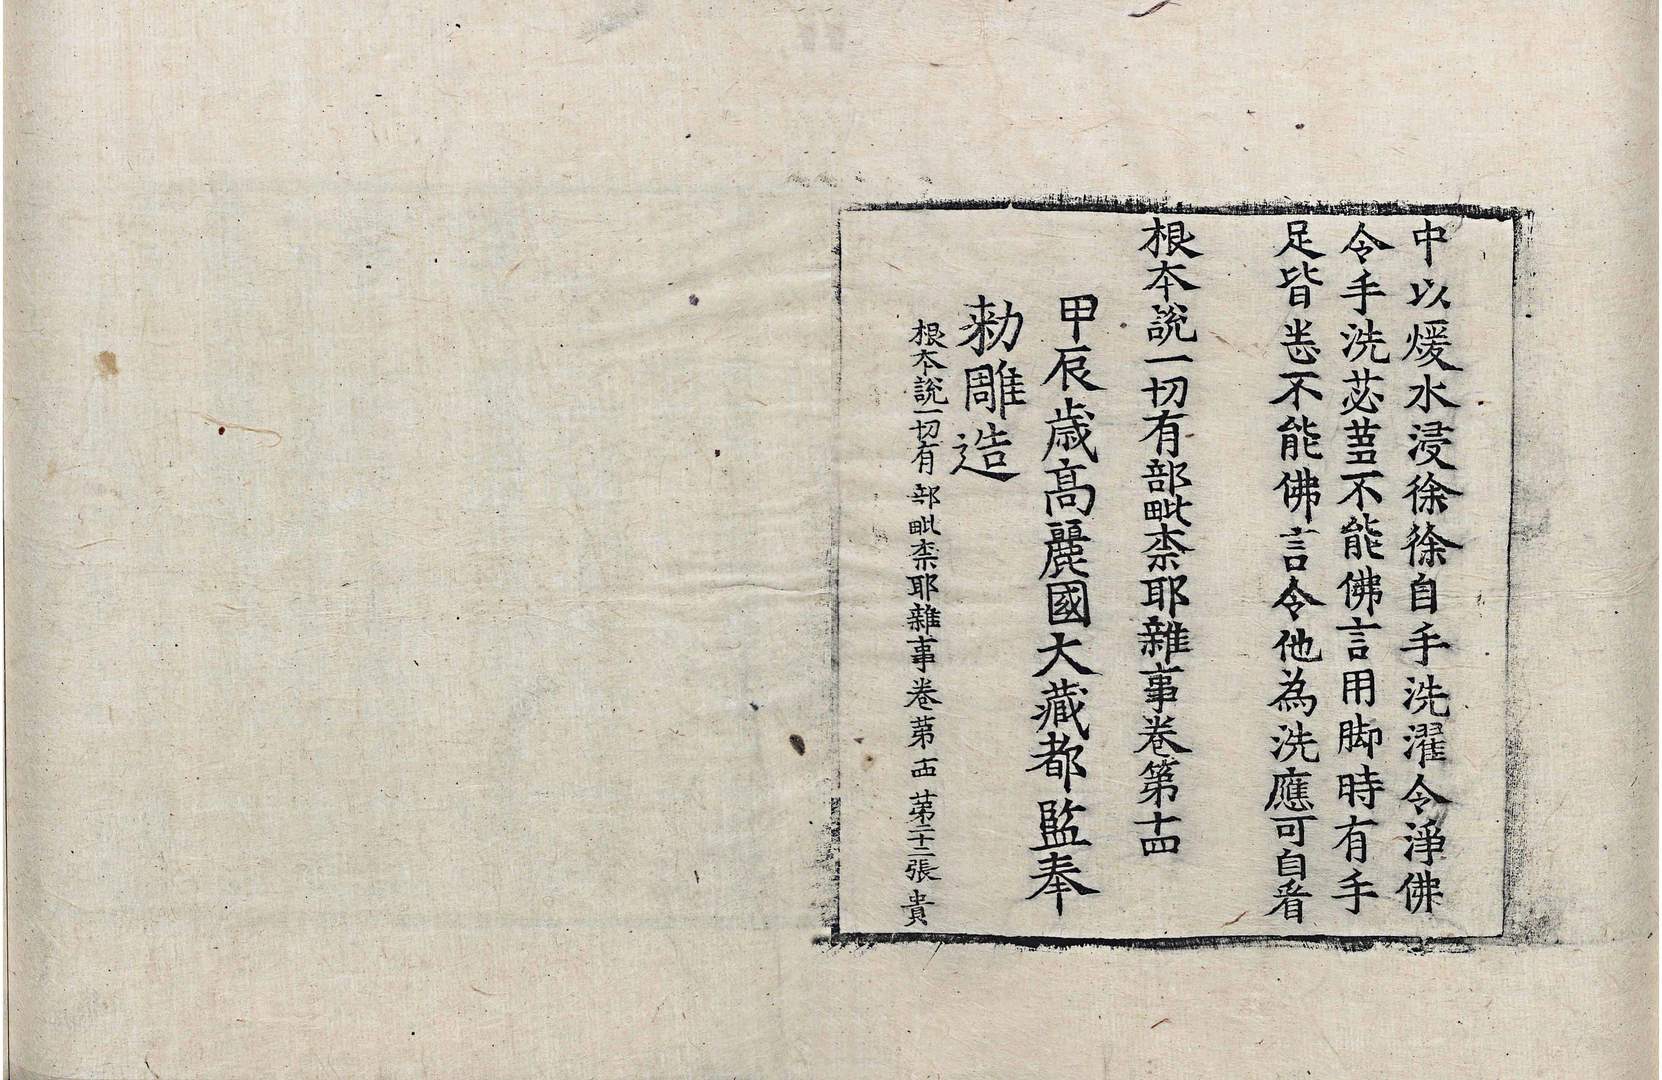 中以煖水浸徐徐自手洗濯令淨佛
令手洗苾蒭不能佛言用脚時有手
足皆患不能佛言令他為洗應可自看
根本說一切有部毗柰耶雜事卷第十四
甲辰歲高麗國大藏都監奉
勑雕造
根本說一切有部毗柰耶雜事卷第十四 第二十二張 貴